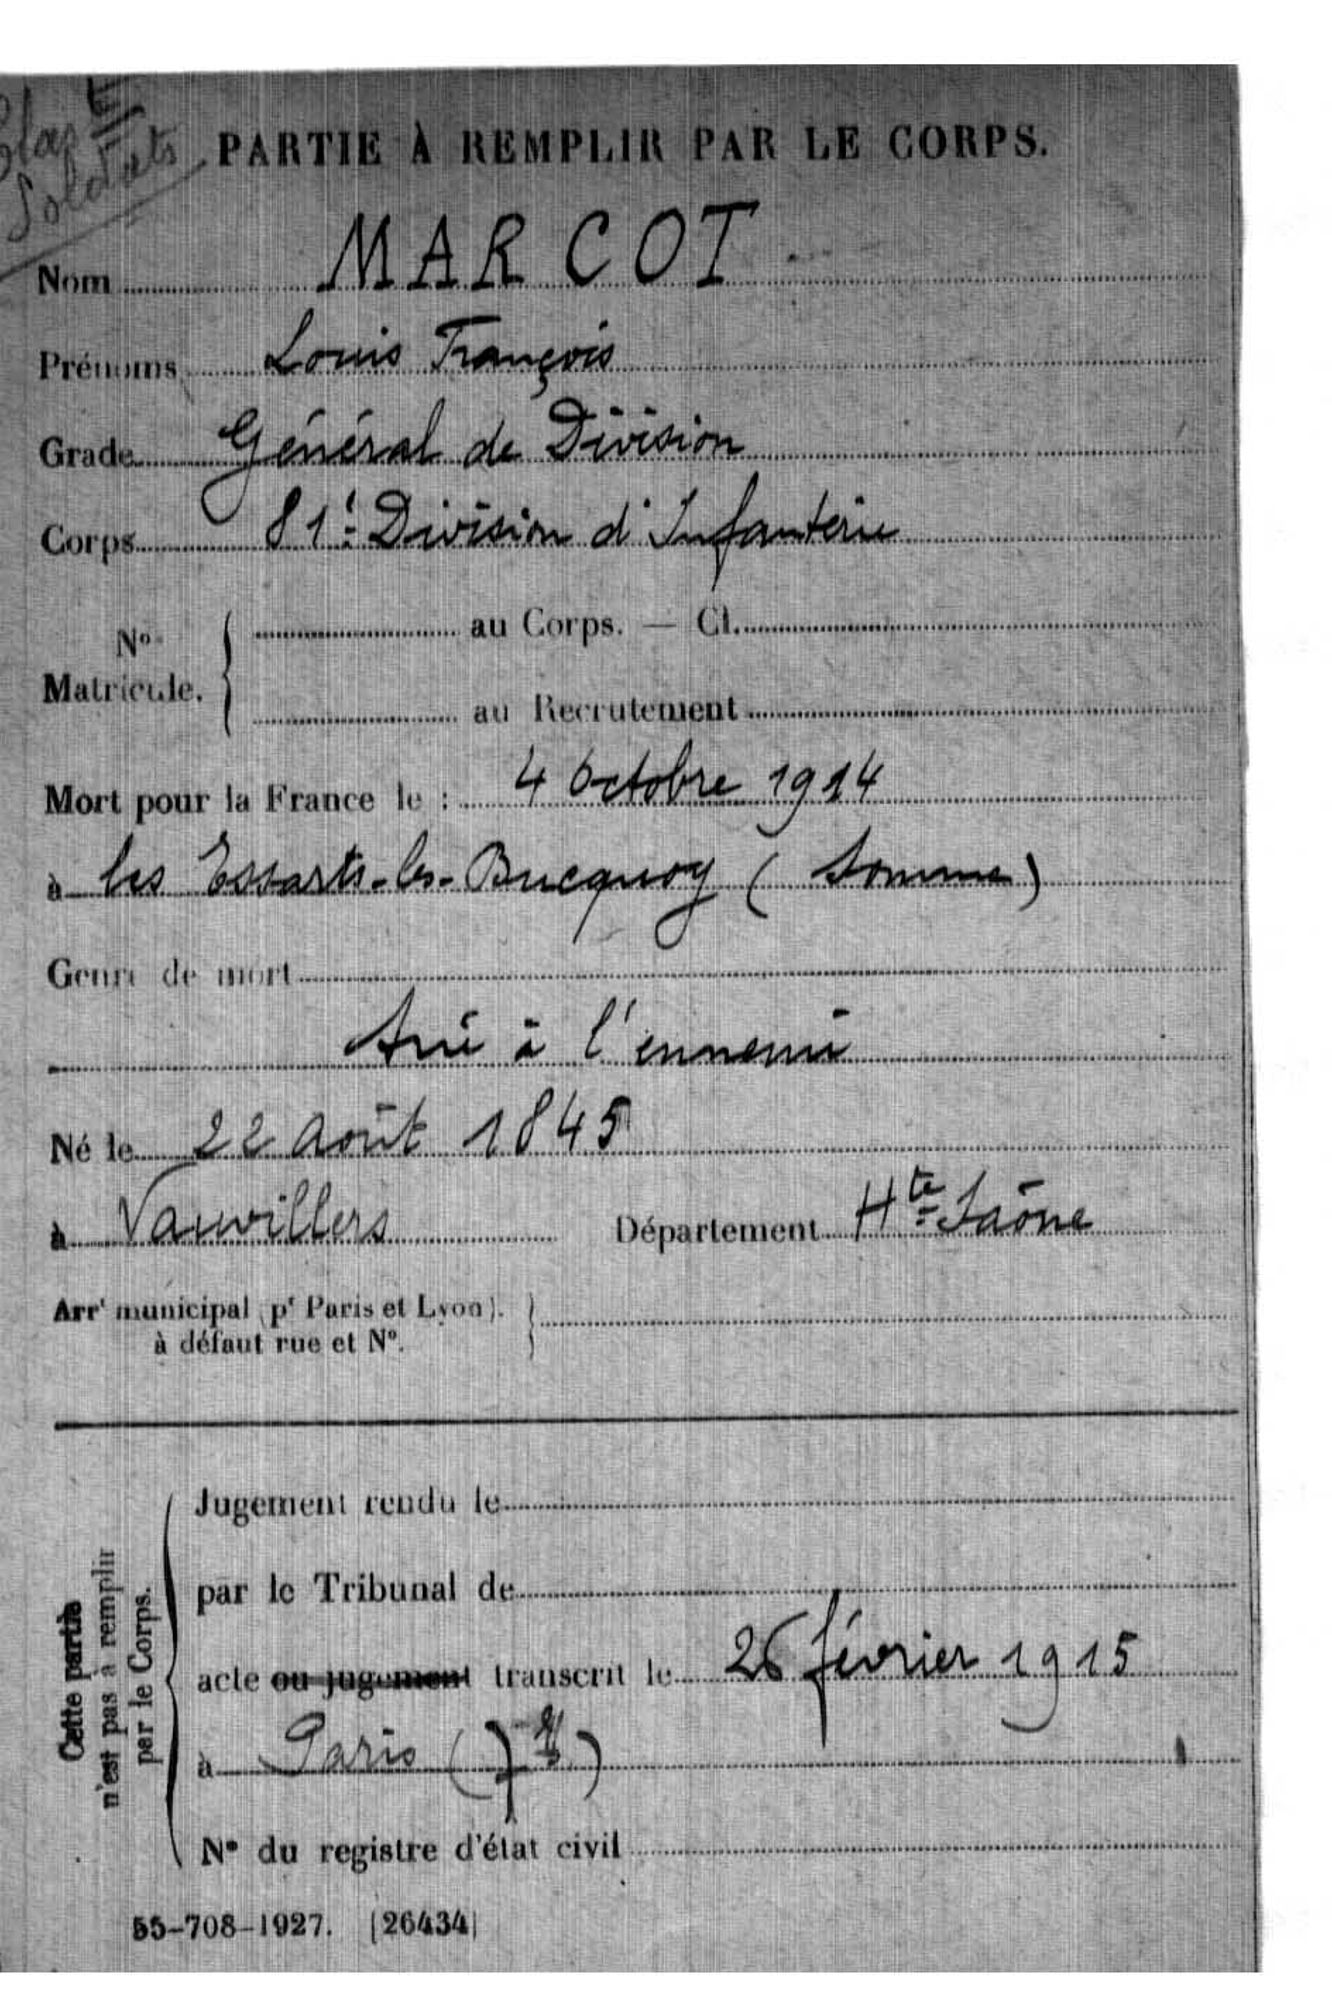 Soldats
PARTIE À REMPLIR PAR LE CORPS.
Nom MARCOT
Prénoms Louis François
Grade Général de Division
Corps 81e Division d'Infanterie
Nos Matricule. { au Corps. — Cl.
au Recrutement
Mort pour la France le : 4 Octobre 1914
à les Essarts-les-Bucquoy (Somme)
Genre de mort
Tué à l'ennemi
Né le 22 Août 1845
à Vauvillers Département Hte-Saône
Arrt municipal (pr Paris et Lyon).
à défaut rue et N°.
Cette partie
n'est pas à remplir
par le Corps.
Jugement rendu le
par le Tribunal de
acte ou jugement transcrit le 26 février 1915
à Paris (7e)
N° du registre d'état civil
55-708-1927. [26434]